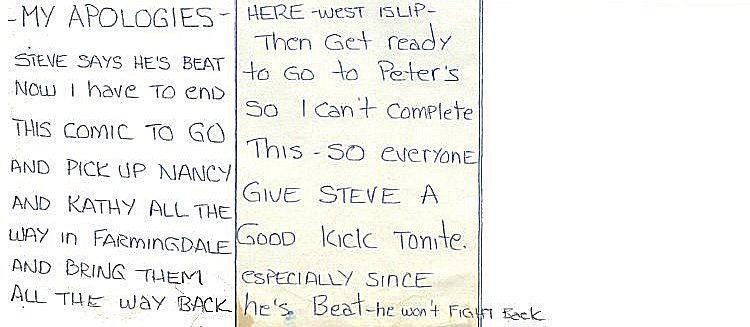 -MY APOLOGIES-
STEVE SAYS HE'S BEAT
NOW I have TO end
THIS COMIC TO GO
AND PICK UP NANCY
AND KATHY ALL THE
WAY in FARMINGDALE
AND BRING THEM
ALL THE WAY BACK
HERE -WEST ISLIP-
Then Get ready
to GO to Peter's
SO I Can't Complete
This - SO everyONE
GIVE STEVE A
GOOD Kick Tonite.
eSPECIALLY SINCE
he's Beat-he won't FIGHT Back